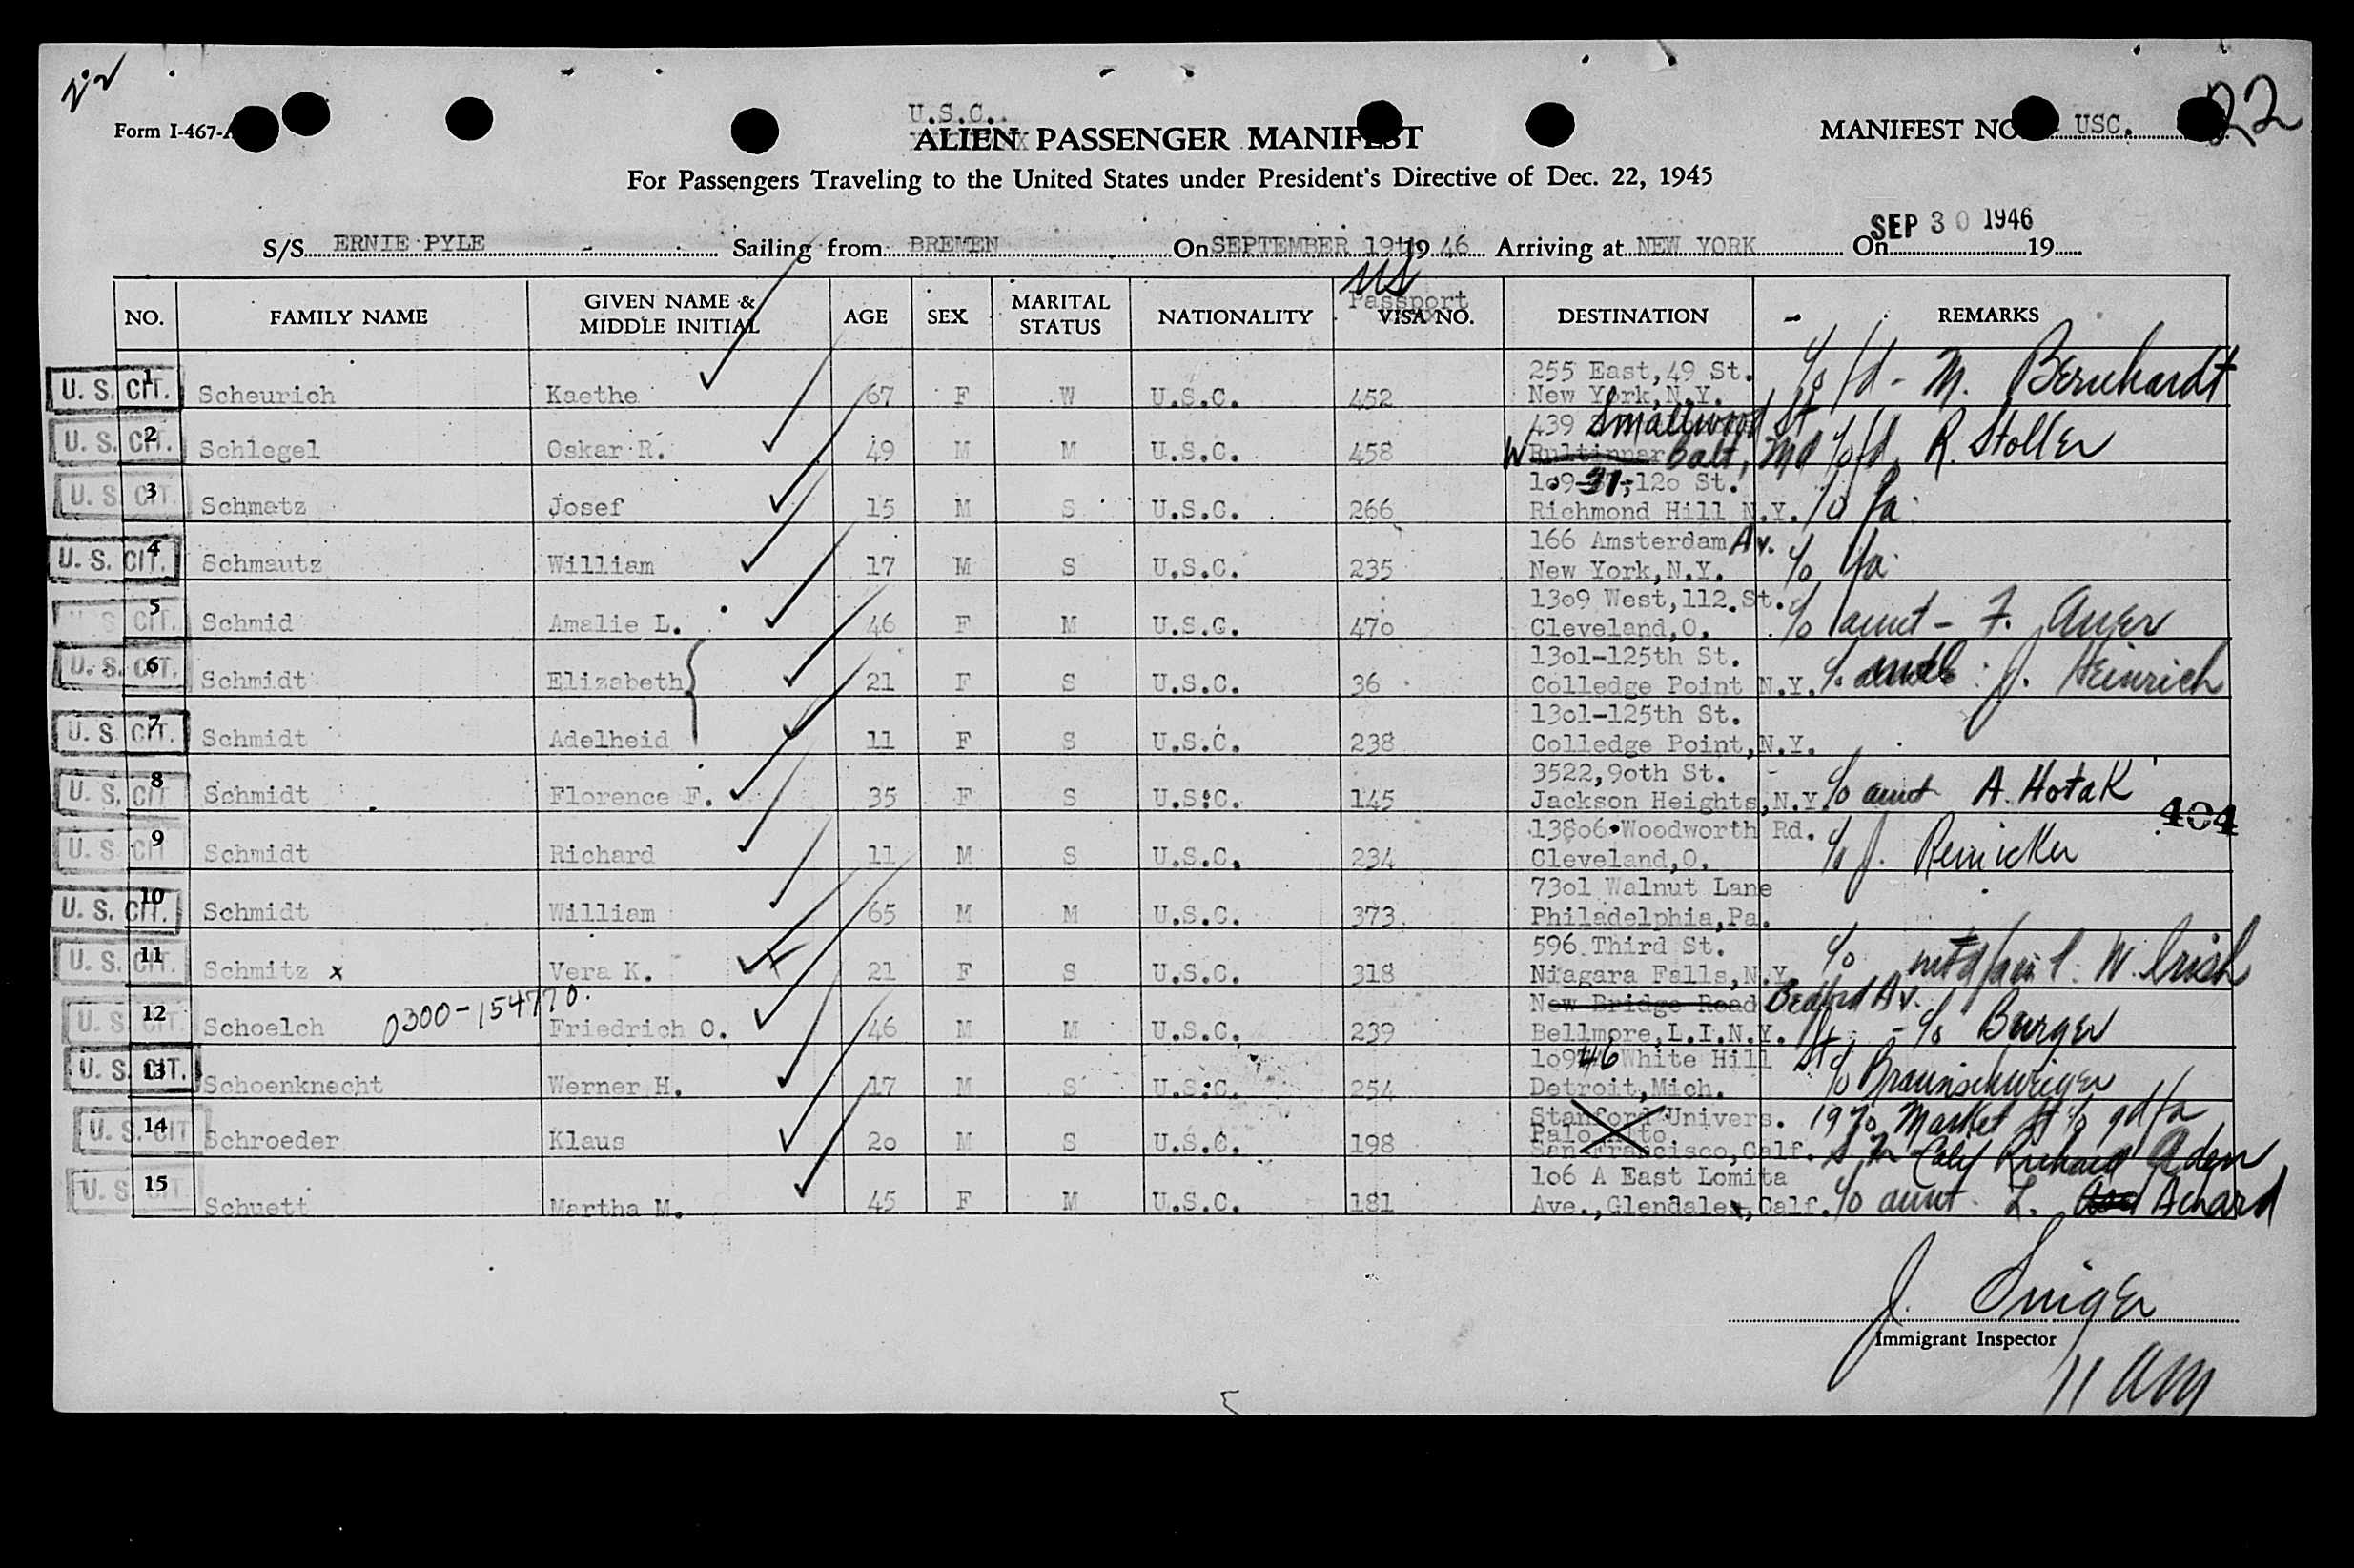 22
Form I-467-A
U.S.C.
ALIEN PASSENGER MANIFEST
MANIFEST NO. USC. 22
For Passengers Traveling to the United States under President's Directive of Dec. 22, 1945
S/S ERNIE PYLE Sailing from BREMEN On SEPTEMBER 19th 19 46 Arriving at NEW YORK On SEP 30 1946 19
US
Passport
NO. FAMILY NAME GIVEN NAME & MIDDLE INITIAL AGE SEX MARITAL STATUS NATIONALITY VISA NO. DESTINATION REMARKS
255 East,49 St.
U. S. CIT. 1 Scheurich Kaethe 67 F W U.S.C. 452 New York,N.Y. c/o fd - M. Bernhardt
439 Smallwood St
U. S. CIT. 2 Schlegel Oskar R. 49 M M U.S.C. 458 W Balt, Md c/o fd R. Stoller
109-31-120 St.
U. S. CIT. 3 Schmatz Josef 15 M S U.S.C. 266 Richmond Hill N.Y. c/o fa
166 Amsterdam Av.
U. S. CIT. 4 Schmautz William 17 M S U.S.C. 235 New York,N.Y. c/o fa
1309 West,112.St.
U. S. CIT. 5 Schmid Amalie L. 46 F M U.S.G. 470 Cleveland,O. c/o aunt - F. Auer
1301-125th St.
U. S. CIT. 6 Schmidt Elizabeth 21 F S U.S.C. 36 Colledge Point N.Y. c/o J. Heinrich
1301-125th St.
U. S. CIT. 7 Schmidt Adelheid 11 F S U.S.C. 238 Colledge Point,N.Y.
3522,90th St.
U. S. CIT 8 Schmidt Florence F. 35 F S U.S.C. 145 Jackson Heights,N.Y c/o aunt A. Hotak
404
13806 Woodworth Rd.
U. S. CIT 9 Schmidt Richard 11 M S U.S.C. 234 Cleveland,O. c/o J. Reinicker
7301 Walnut Lane
U. S. CIT. 10 Schmidt William 65 M M U.S.C. 373 Philadelphia,Pa.
596 Third St.
U. S. CIT. 11 Schmitz x Vera K. 21 F S U.S.C. 318 Niagara Falls,N.Y. c/o W. Irish
New Bridge Road Bedford Av.
U. S. CIT. 12 Schoelch 0300-154770. Friedrich O. 46 M M U.S.C. 239 Bellmore,L.I.N.Y. - c/o Burger
10946 White Hill St
U. S. CIT. 13 Schoenknecht Werner H. 17 M S U.S.C. 254 Detroit,Mich. c/o Braunschweiger
Stanford Univers. 1970 Market St c/o gd/fa
Palo Alto
U. S. CIT 14 Schroeder Klaus 20 M S U.S.C. 198 San Francisco,Calf. S F Calif Richard Aden
106 A East Lomita
U. S. CIT 15 Schuett Martha M. 45 F M U.S.C. 181 Ave.,Glendale,Calf. c/o aunt L. Achard
J. Singer
Immigrant Inspector
11 AM